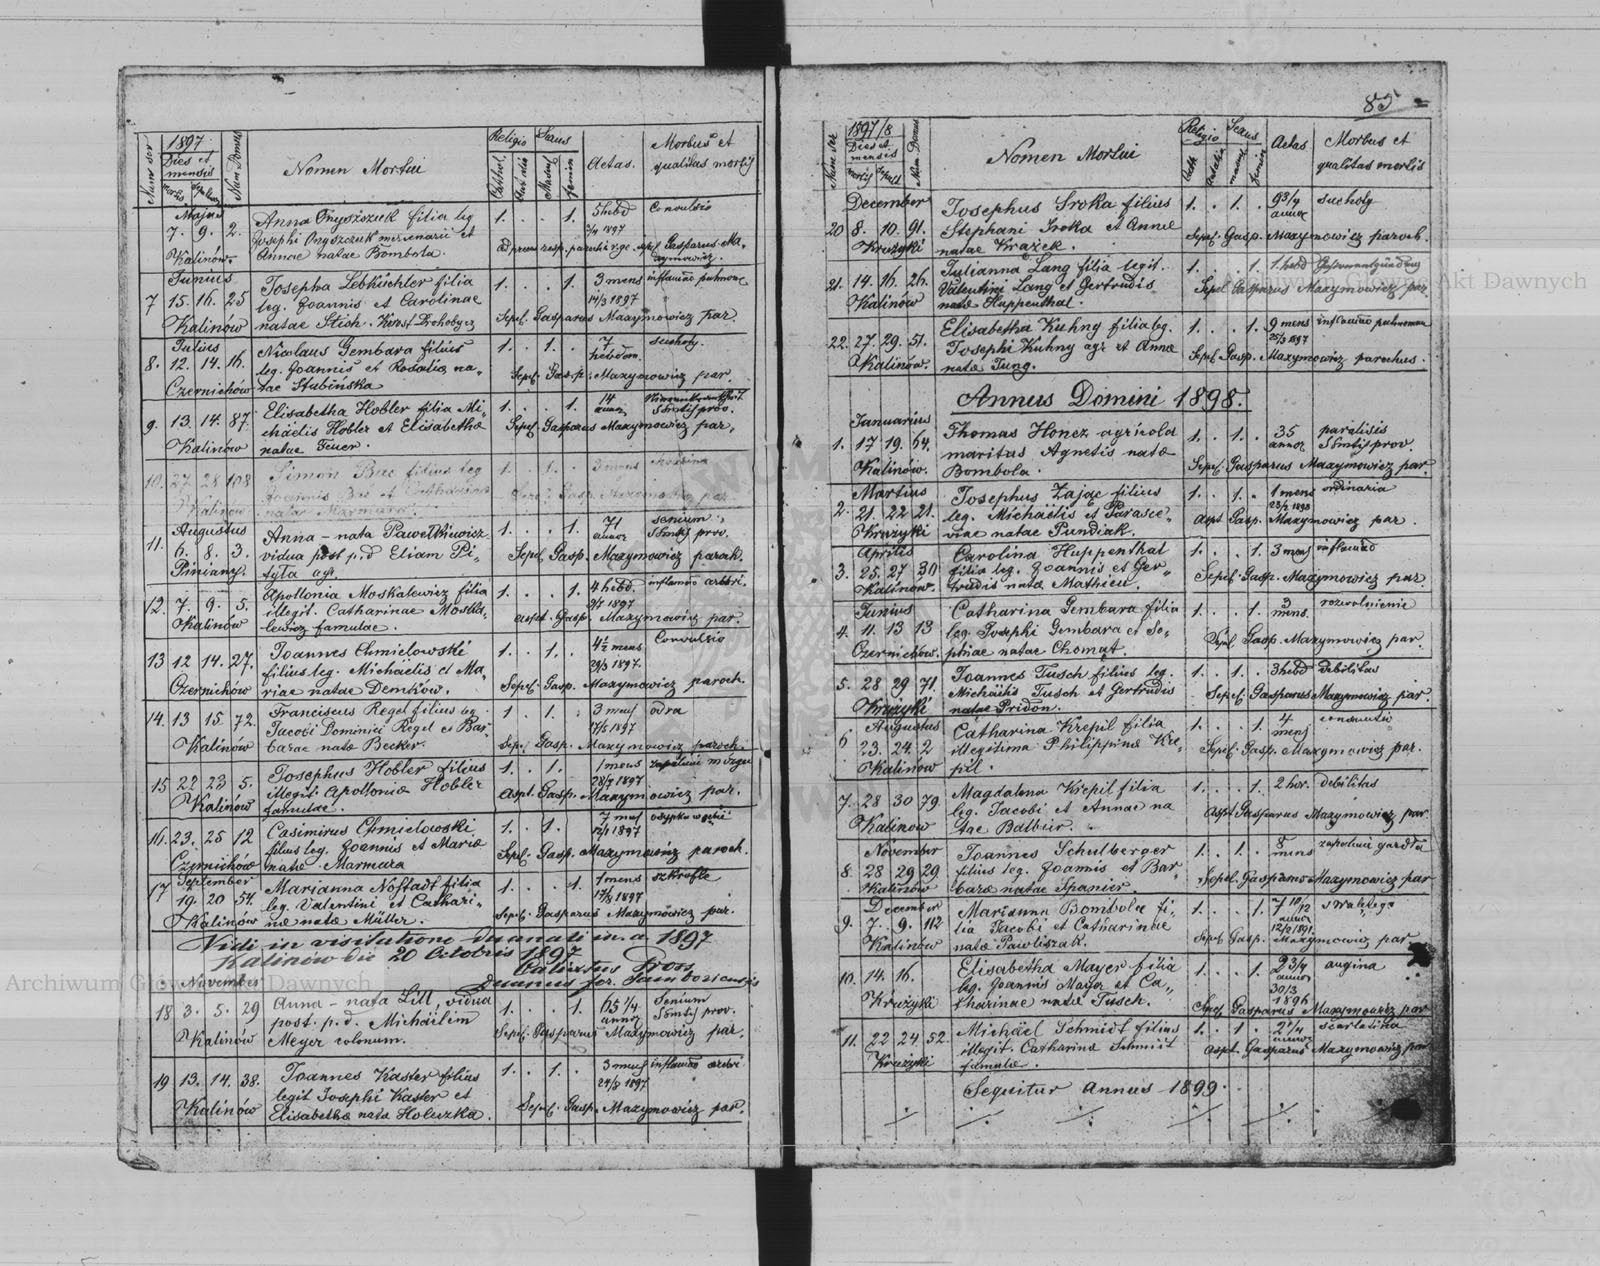 1897
Num ser
Dies et
mensis
mortis
Num Domus
Nomen Mortui
Religio
Sexus
Cathol.
Aut alia
Mascul
femin
Aetas.
Morbus et
qualitas mortis
Majus
7. 9. 2.
Kalinów.
Anna Onyszczuk filia leg
Josephi Onyszczuk mercenarii et
Annae natae Bombola.
1. . . 1.
5 hebd
1897
Convulsio
Gasparus Ma,
zymowicz.
Junius
7 15. 16. 25
Kalinów
Josepha Lebküchler filia
leg. Joannis et Carolinae
natae Stich.
1. . . 1.
3 mens
1897
inflamatio pulmonu
Sepel. Gasparus Mazymowicz par.
Julius
8. 12. 14. 16.
Czernichów
Nicolaus Gembara filius
leg. Joannis et Rosaliae na,
tae Stubińska
1. . 1. .
7
hebdom.
suchoty.
Sepel. Gasp. Mazymowicz par.
9. 13. 14. 87.
Kalinów
Elisabetha Hobler filia Mi,
chäelis Hobler et Elisabethae
natae Feuer.
1. . . 1.
14
annor
SSmtis prov.
Sepel. Gasparus Mazymowicz par,
10. 27. 28 108
Kalinów
Simon Bac filius leg
Joannis Bac et Catharinae
natae Marmura.
1. . 1. .
3 mens
Sepel. Gasp. Mazymowicz par
Augustus
11. 6. 8. 3.
Piniany.
Anna - nata Pawelkiewicz
vidua post p.d Eliam Pi,
tyla agr.
1. . . 1.
71
annor
senium,
SSmtis prov.
Sepel. Gasp. Mazymowicz paroch.
12. 7. 9. 5.
Kalinów
Apollonia Moskalewicz filia
illegit. Catharinae Moska,
lewicz famulae.
1. . . 1.
4 hebd.
1897
aspt. Gasp. Mazymowicz par.
13 12 14. 27.
Czernichów
Joannes Chmielowski
filius leg. Michäelis et Ma,
riae natae Demków.
1. . 1. .
4½ mens
1897.
Convulsio
Sepel. Gasp. Mazymowicz paroch.
14. 13 15. 72.
Kalinów
Franciscus Regel filius leg
Jacobi Dominici Regel et Bar,
barae natae Becker.
1. . 1. .
3 mens
17/5 1897
odra
Sep. Gasp. Mazymowicz paroch.
15 22 23 5.
Kalinów
Josephus Hobler filius
illegit. Apolloniae Hobler
famulae.
1. . 1.
1 mens
1897
zapaleni mózgu
Aspt. Gasp. Mazymowicz par.
16. 23. 25 12
Czernichów
Casimirus Chmielowski
filius leg. Joannis et Mariae
natae Marmura
1. . 1.
7 mens
1897
Sepel. Gasp. Mazymowicz paroch.
September
17 19. 20 54.
Kalinów
Marianna Nofstadt filia
leg. Valentini et Cathari,
nae natae Müller.
1. . . 1.
1 mens
1897
szkrofle
Sepel. Gasparus Mazymowicz par.
Vidi in visitatione decanali in. a. 1897
Kalinów die 20 Octobris 1897
Calixtus
Decanus for. Samboriensis
November
18 3. 5. 29
Kalinów
Anna - nata Lill, vidua
post. p. d. Michäelim
Meyer colonum.
1. . . 1.
65 1/4
annor
Senium
SSmtis prov.
Sepel. Gasparus Mazymowicz par.
19 13. 14. 38.
Kalinów
Joannes Kaster filius
legit Josephi Kaster et
Elisabethae nata Holeczka.
1. . 1. .
3 mens
1897
Sepel. Gasp. Mazymowicz par.
85
1897/8
Num ser
Dies et
mensis
mortis
sepult
Num Domus
Nomen Mortui
Religio
Sexus
Cath
Aetas
Morbus et
qualitas mortis
December
20 8. 10. 91.
Krużyki
Josephus Sroka filius
Stephani Sroka et Annae
natae Krażek.
1. . 1. .
9 3/4
annor
suchoty
Sepel. Gasp. Mazymowicz paroch.
21. 14. 16. 26.
Kalinów
Julianna Lang filia legit.
Valentini Lang et Gertrudis
natae Huppenthal.
1. . . 1.
1. hebd
Sepel Gasparus Mazymowicz par.
22. 27. 29. 51.
Kalinów.
Elisabetha Kuhny filia leg.
Josephi Kuhny agr et Annae
natae Jung.
1. . . 1.
9 mens
1897
inflamatio pulmonum
Sepel. Gasp. Mazymowicz parochus.
Annus Domini 1898.
Januarius
1. 17 19. 64.
Kalinów.
Thomas Honcz agricola
maritus Agnetis natae
Bombola.
1. . 1. .
35
annor
paralisis
SSmtis prov.
Sepel. Gasparus Mazymowicz par.
Martius
2. 21. 22 21.
Krużyki
Josephus Zając filius
leg. Michäelis et Parasce,
viae natae Pundiak.
1. . 1. .
1 mens
1898
ordinaria
aspt Gasp. Mazymowicz par.
Aprilis
3. 25. 27 30
Kalinów.
Carolina Huppenthal
filia leg. Joannis et Ger,
trudis natae Mathieu.
1. . . 1.
3 mens
inflamatio
Sepel. Gasp. Mazymowicz par.
Junius
4. 11. 13 13
Czernichów.
Catharina Gembara filia
leg. Josephi Gembara et So,
phiae natae Chomąt.
1. . . 1.
3
mens.
rozwolnienie
Sepel Gasp. Mazymowicz par.
5. 28 29 71.
Krużyki
Joannes Tusch filius leg.
Michäelis Tusch et Gertrudis
natae Pridon.
1. . 1. .
3 hebd
debilitas
Sepel. Gasparus Mazymowicz par
Augustus
6 23. 24. 2
Kalinów
Catharina Krepil filia
illegitima Philippinae Kre,
pil.
1. . . 1.
4
mens
Sepel. Gasp. Mazymowicz par.
7. 28 30 79.
Kalinow
Magdalena Krepil filia
leg. Jacobi et Annae na
tae Balbier.
1. . . 1.
2 hor.
debilitas
Aspt Gasparus Mazymowicz par
November
8. 28 29 29
Kalinów
Joannes Schulberger
filius leg. Joannis et Bar,
barae natae Spanier.
1. . 1. .
8
mens
zapaleni gardła
Sepel. Gasparus Mazymowicz par
December
9. 7. 9. 112
Kalinów
Marianna Bombola fi,
lia Jacobi et Catharinae
natae Pawliszak.
1. . . 1.
7 10/12
annor
1891.
Sepel Gasp. Mazymowicz par
10. 14. 16.
Krużyki
Elisabetha Mayer filia
leg. Joannis Mayer et Ca,
tharinae natae Tusch.
1. . . 1.
2 3/4
annor
30/3
1896
angina
Sepel Gasparus Mazymowicz par
11. 22 24. 52.
Krużyki
Michäel Schmidt filius
illegit. Catharinae Schmidt
famulae.
1. . 1 .
2 1/4
annor
scarlatina
aspt. Gasparus Mazymowicz par
Sequitur annus 1899.
Archiwum Główne Akt Dawnych
Archiwum Główne Akt Dawnych